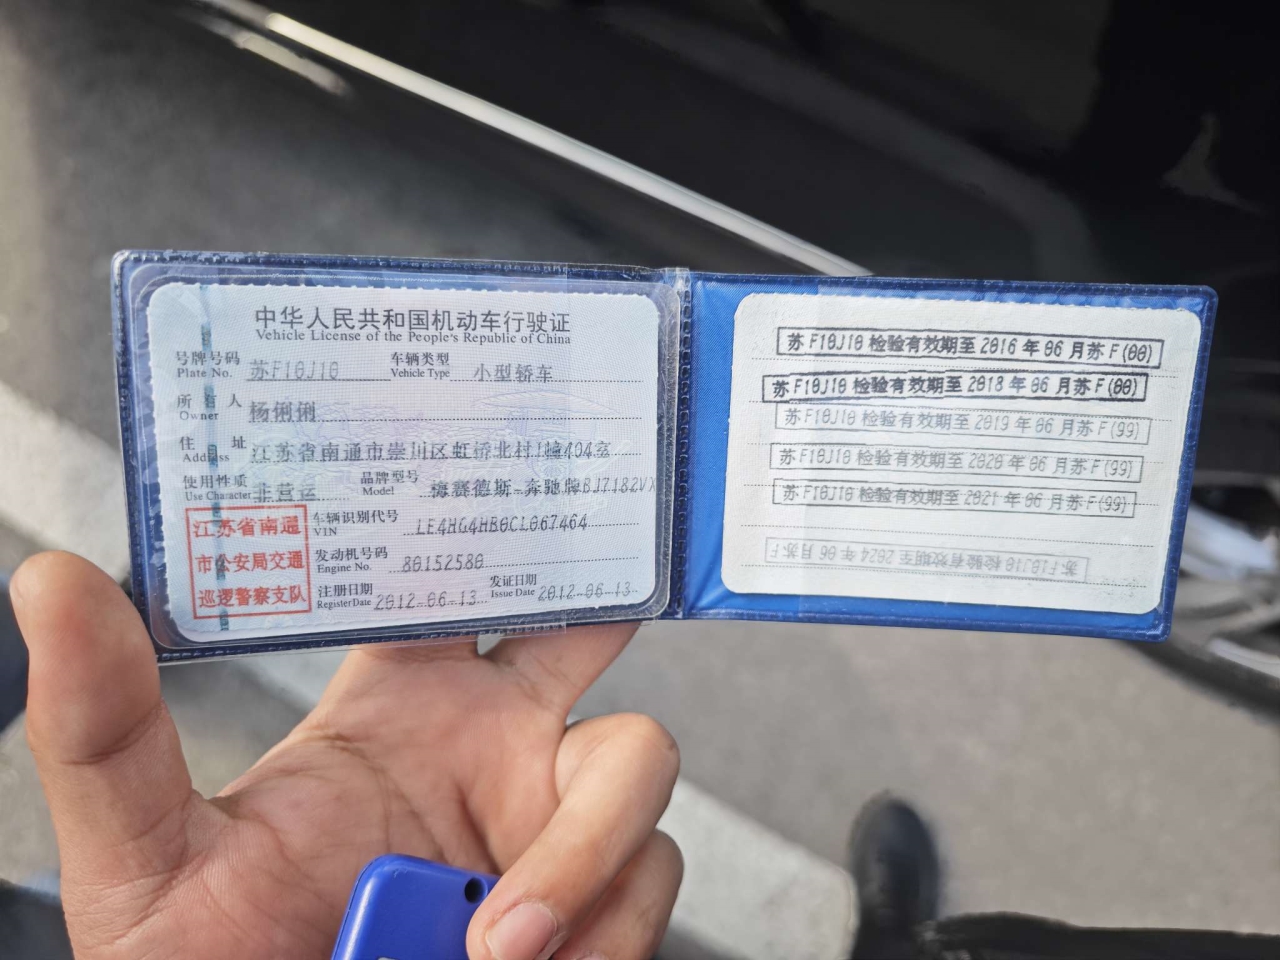 中华人民共和国机动车行驶证
Vehicle License of the People's Republic of China
号牌号码 苏F10J10 车辆类型 小型轿车
Plate No. Vehicle Type
所有人 杨俐俐
Owner
住址 江苏省南通市崇川区虹桥北村1幢404室
Address
使用性质 非营运 品牌型号 梅赛德斯-奔驰牌BJ7182VX
Use Character Model
江苏省南通
市公安局交通
巡逻警察支队
车辆识别代号 LE4HG4HB0CL067464
VIN
发动机号码 80152580
Engine No.
注册日期 2012-06-13 发证日期 2012-06-13
Register Date Issue Date
苏F10J10 检验有效期至 2016 年 06 月苏F(00)
苏F10J10 检验有效期至 2018 年 06 月苏F(00)
苏F10J10 检验有效期至 2019 年 06 月苏F(99)
苏F10J10 检验有效期至 2020 年 06 月苏F(99)
苏F10J10 检验有效期至 2021 年 06 月苏F(99)
苏F10J10 检验有效期至 2024 年 06 月苏F